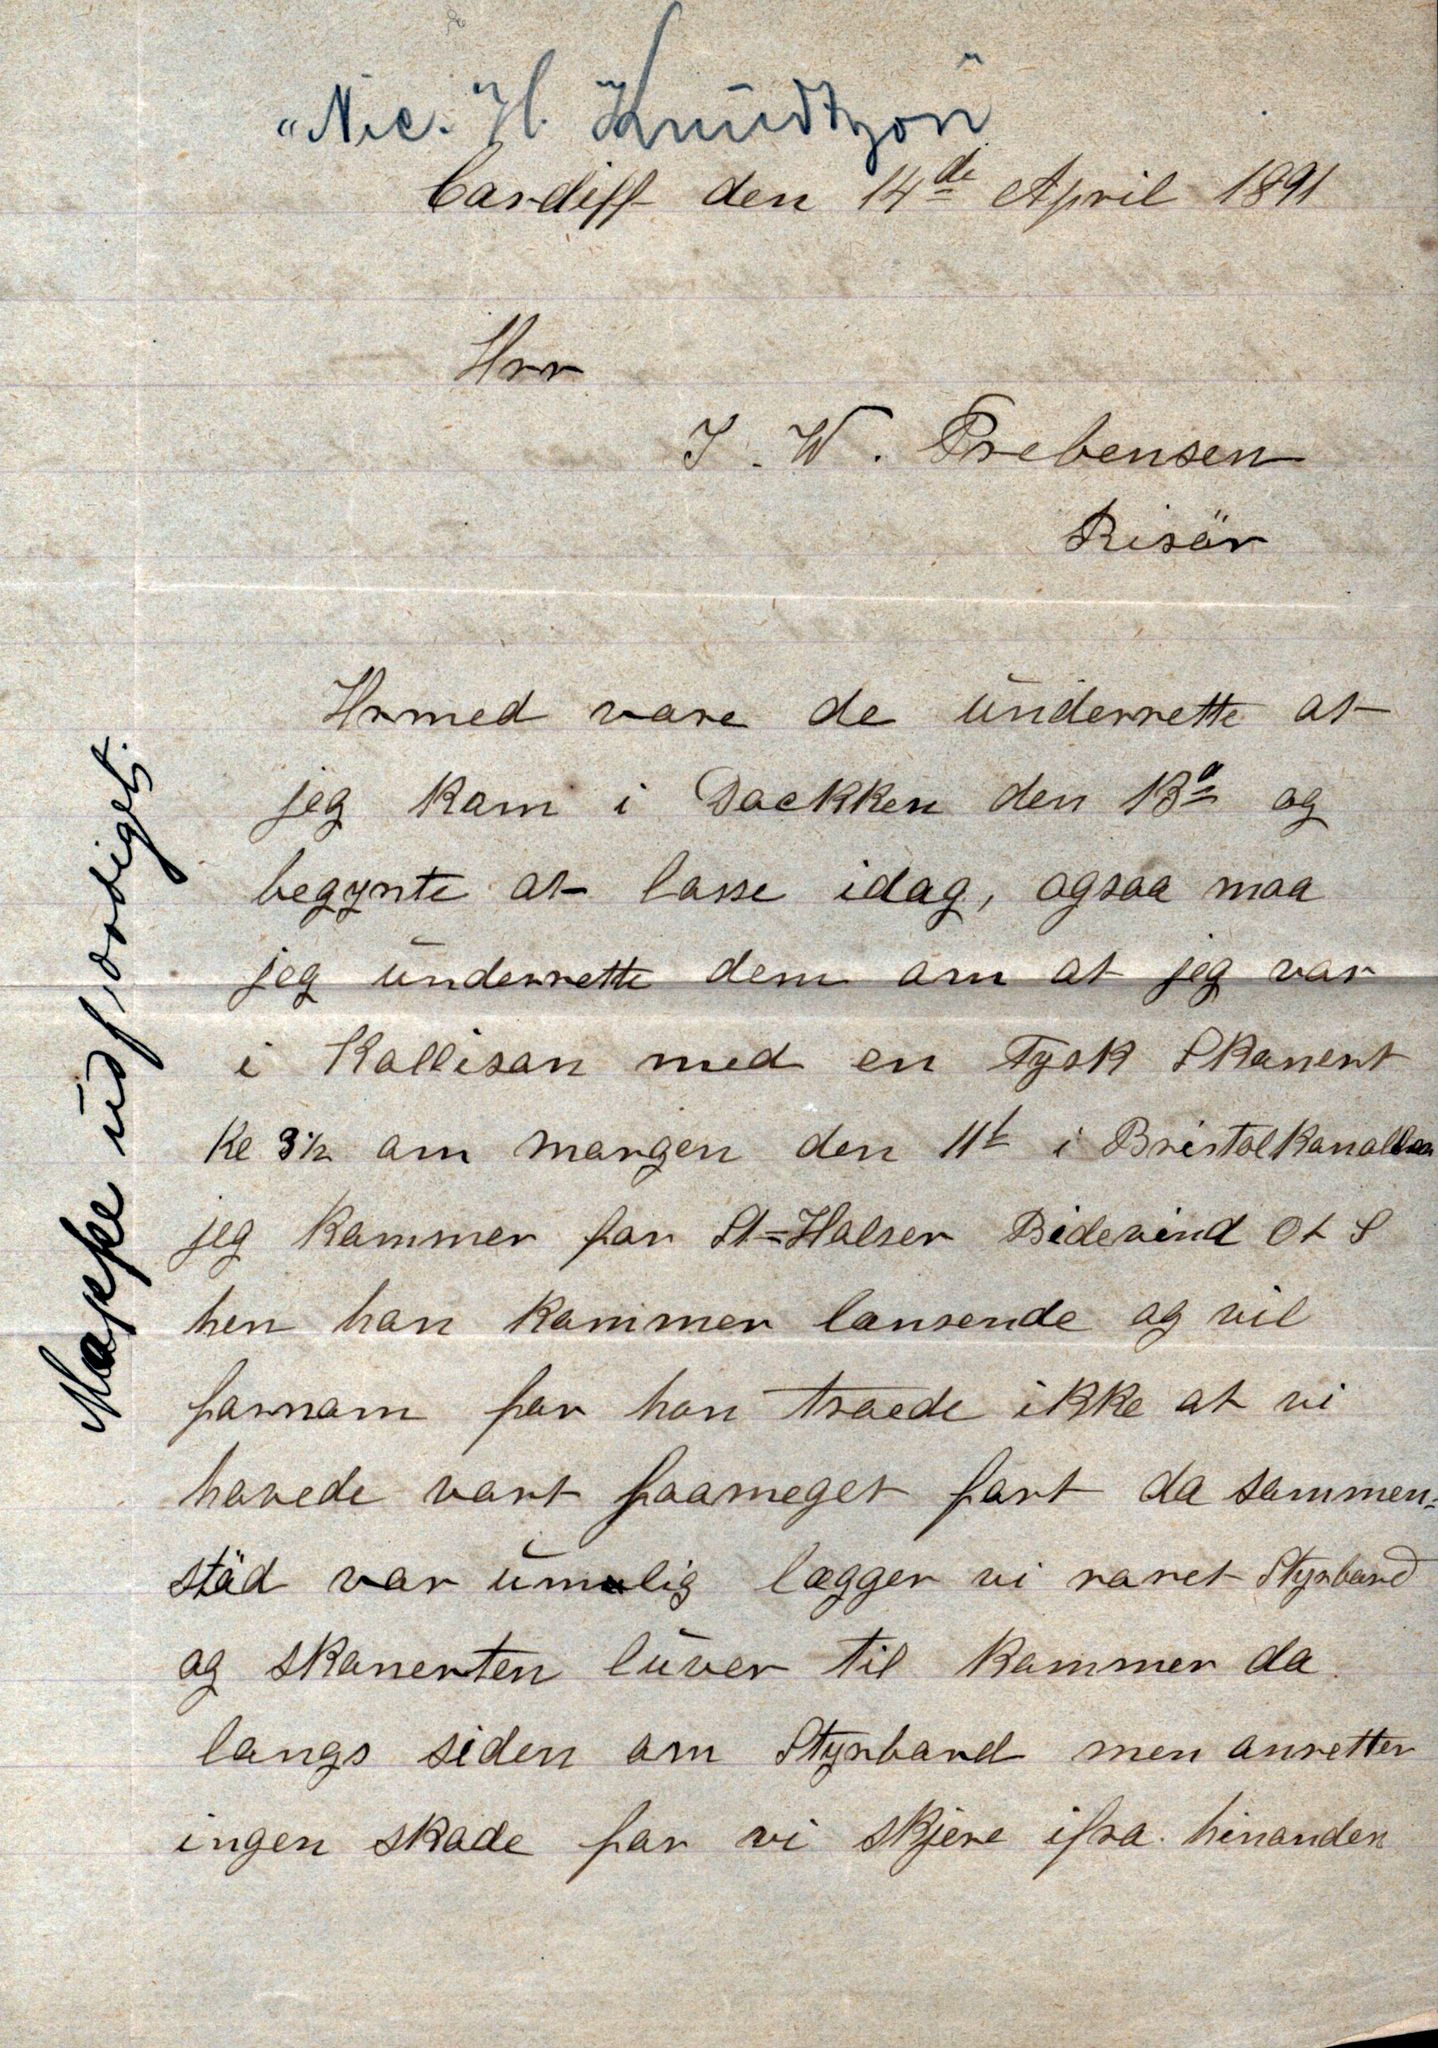 "Nic. H. Knudtzon"
Cardiff den 14de April 1891
Hrr
J. W. Prebensen
Risör
Hrmed vare de underrette at
jeg kom i Dockken den 13de og
begynte at lasse idag, ogsaa maa
jeg underrette dem om at jeg var
i Kollison med en Tysk Skonert
Kl 3½ om morgen den 11te i Bristolkanallen
jeg kommer for St=Halser Bidevind Ot S
hen han kommer lænsende og vil
fornom for han troede ikke at vi
havede vort saameget fart da sammen=
stöd var umulig lægger vi roret Styrbord
og skonerten luver til kommer da
langs siden om Styrbord men anretter
ingen skade for vi skjere ifra hinanden
Mappe udfærdiget.